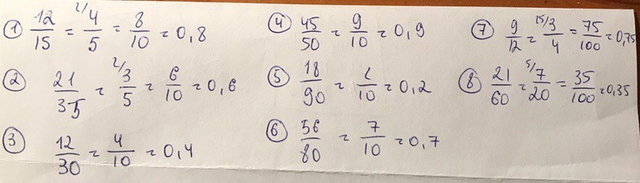 ① 12/15 = 2/ 4/5 = 8/10 = 0,8
② 21/35 = 2/ 3/5 = 6/10 = 0,6
③ 12/30 = 4/10 = 0,4
④ 45/50 = 9/10 = 0,9
⑤ 18/90 = 2/10 = 0,2
⑥ 56/80 = 7/10 = 0,7
⑦ 9/12 = 25/ 3/4 = 75/100 = 0,75
⑧ 21/60 = 5/ 7/20 = 35/100 = 0,35